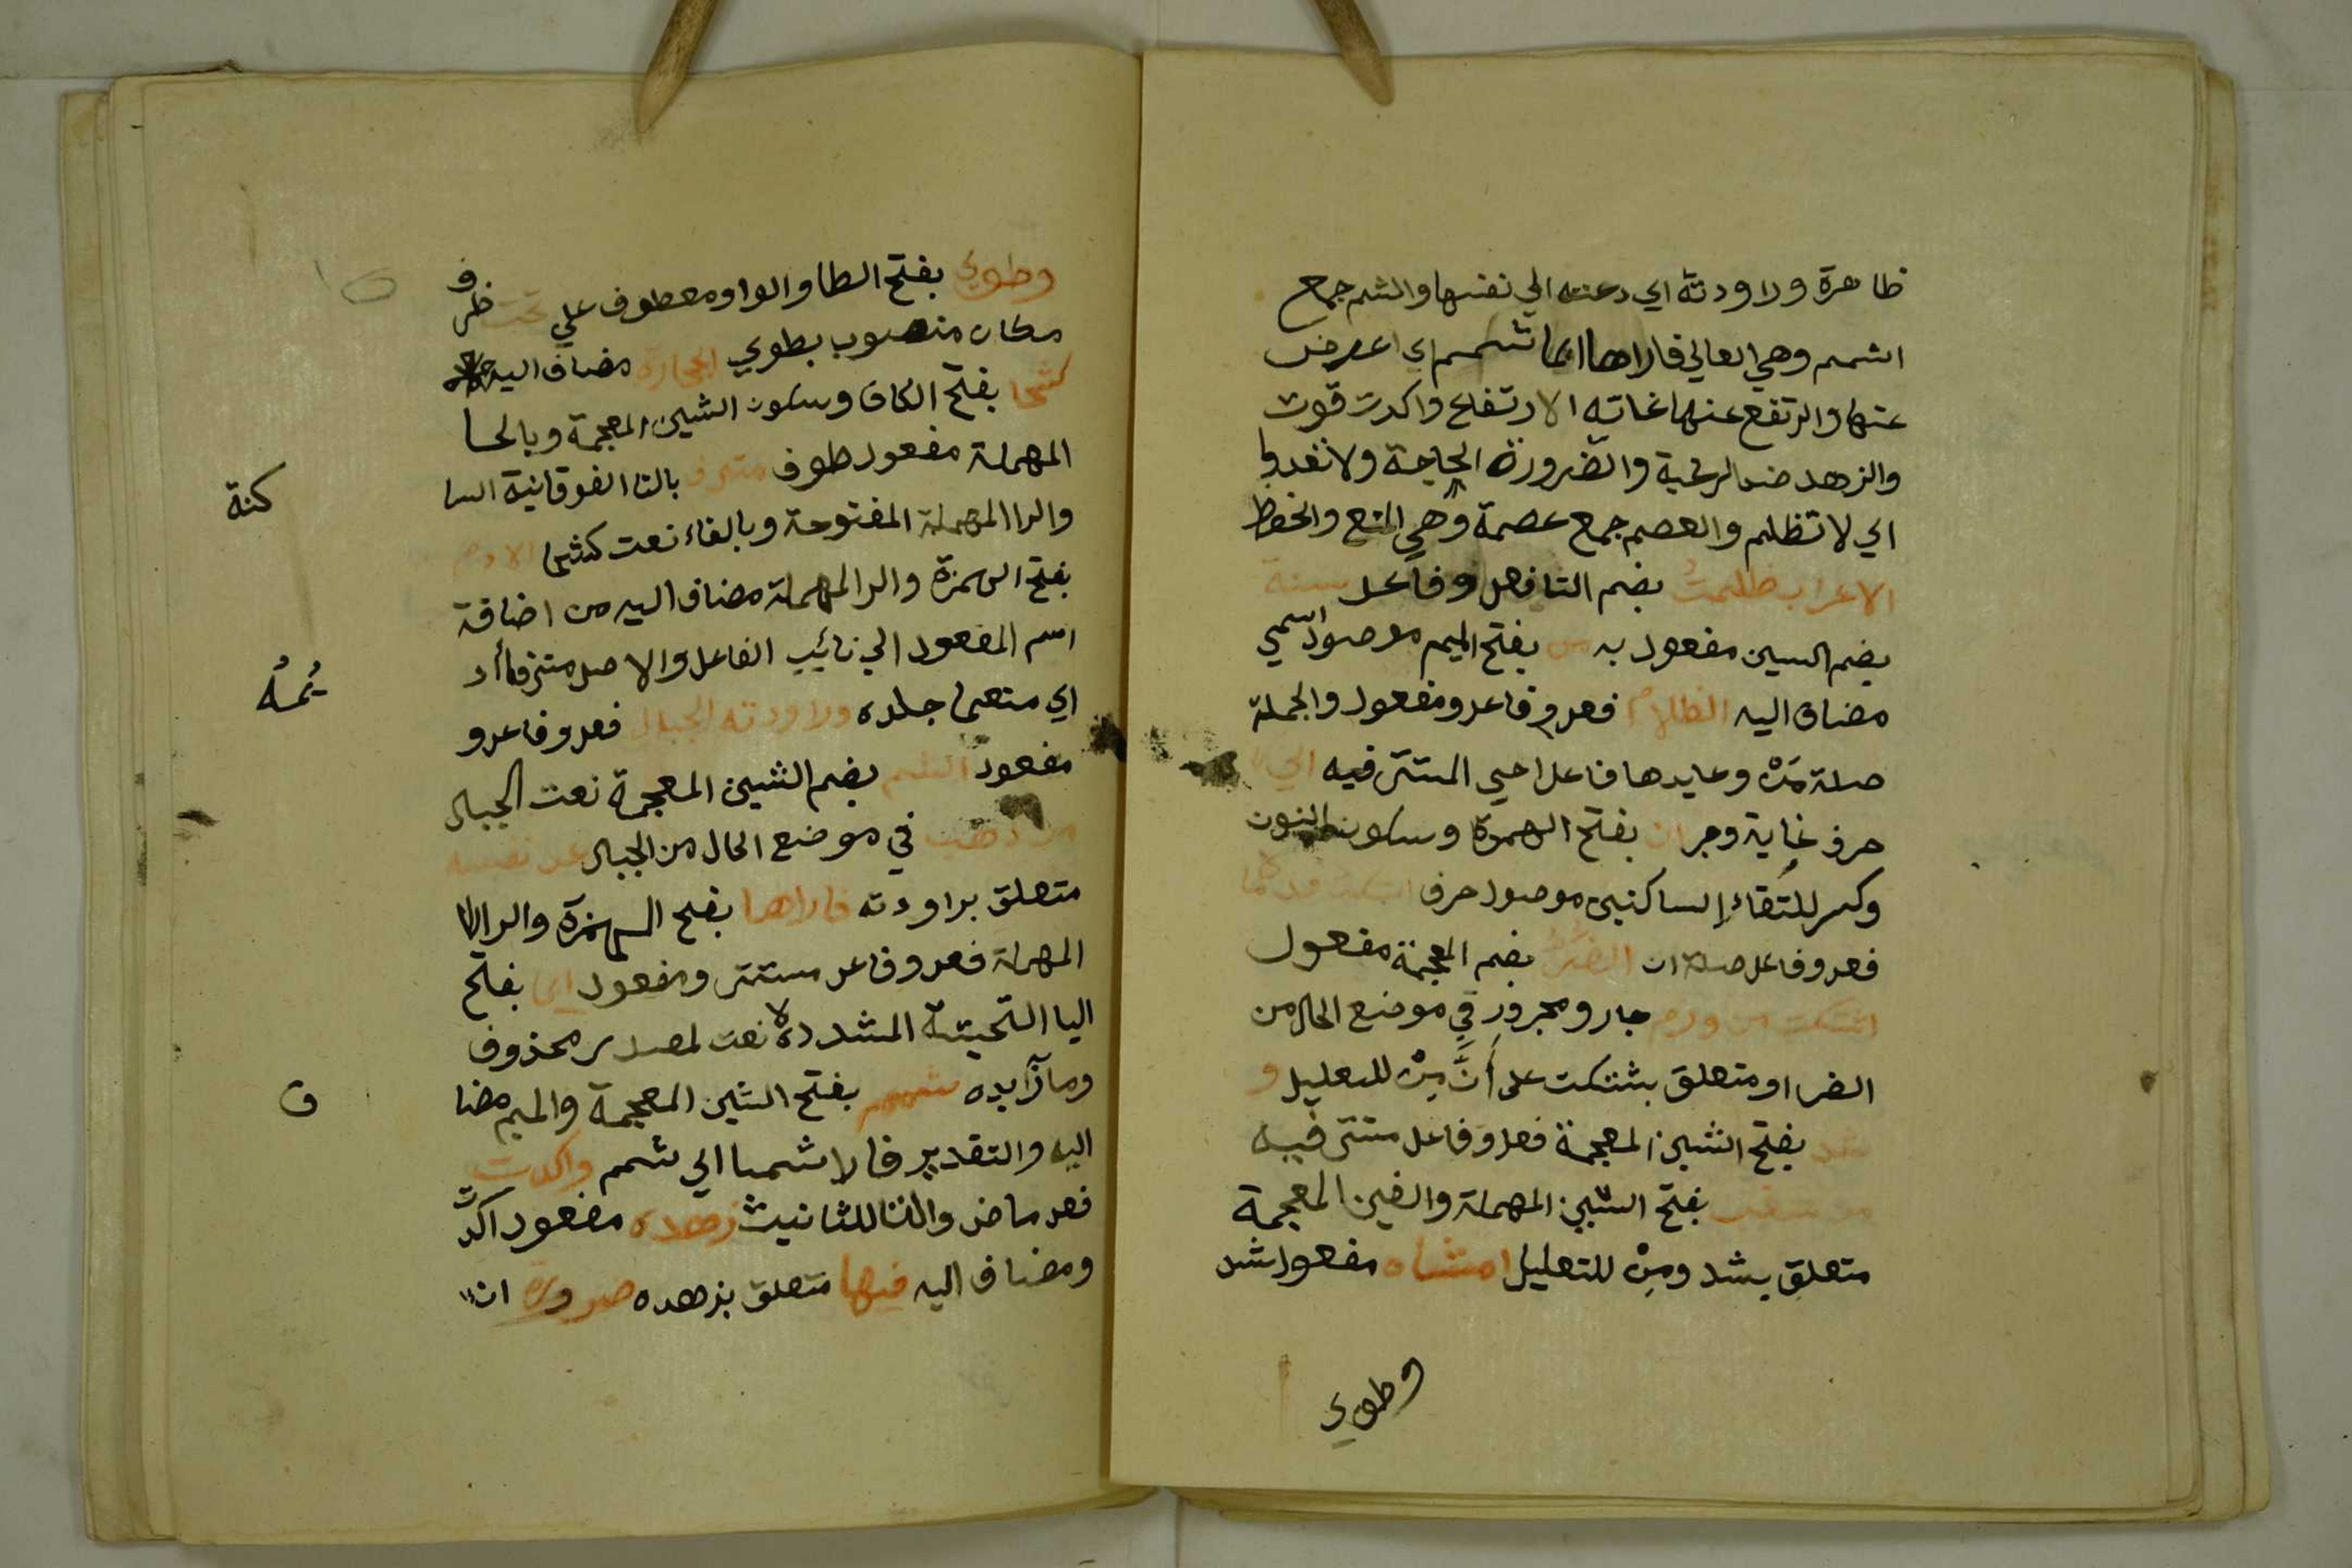 ظاهرة وراودته اي دعته الي نفسها والشم جمع
اشمم وهي العالي فاراها ايما شمم اي اعرض
عنها وارتفع عنها غاته الارتفاع واكدت قوت
والزهد ضد الرغبة والضرورة الحاجة ولا تعدوا
اي لا تظلم والعصم جمع عصمة وهي المنع والحفظ
الاعراب ظلمتُ بضم التا فعل وفاعل سنة
بضم السين مفعول به من بفتح الميم موصول اسمي
مضاف اليه الظلام فعل وفاعل ومفعول والجملة
صلة مَنْ وعايدها فاعل احيي المستتر فيه الي
حرف غاية وجر ان بفتح الهمزة وسكون النون
وكسر للتقاء الساكنين موصول حرفي اشتكت قدماه
فعل وفاعل صلة ان الضرَّ بضم المعجمة مفعول
اشتكت من ورم جار ومجرور في موضع الحال من
الضر او متعلق بشتكت على أنَّ مِنْ للتعليل و
شد بفتح الشين المعجمة فعل وفاعل مستتر فيه
من سغب بفتح السين المهملة والغين المعجمة
متعلق بشد ومِنْ للتعليل احشاه مفعول شد
وطوي
وطوي بفتح الطا والواو معطوف علي تحت ظرف
مكان منصوب بطوي الحجارة مضاف اليه
كشحا بفتح الكاف وسكون الشين المعجمة وبالحا
المهملة مفعول طوي مترف بالتا الفوقانية
والرا المهملة المفتوحة وبالفاء نعت كشحا الادم
بفتح الهمزة والدا المهملة مضاف اليه من اضافة
اسم المفعول الي نائب الفاعل والاصل مترفا أد
اي متعما جلده وراودته الجبال فعل وفاعل و
مفعول الشم بضم الشين المعجمة نعت الجبال
من ذهب في موضع الحال من الجبال عن نفسه
متعلق براودته فاراها بفتح الهمزة والرا
المهملة فعل وفاعل مستتر ومفعول ايما بفتح
اليا التحتية المشددة نعت لمصدر محذوف
وما زايده شمم بفتح الشين المعجمة والميم مضا
اليه والتقدير فاراها شمما اي شمم واكدت
فعل ماض والتا للثانيث زهده مفعول اكدت
ومضاف اليه فيها متعلق بزهده ضرورة ان
كنة
يُمنُه
ف